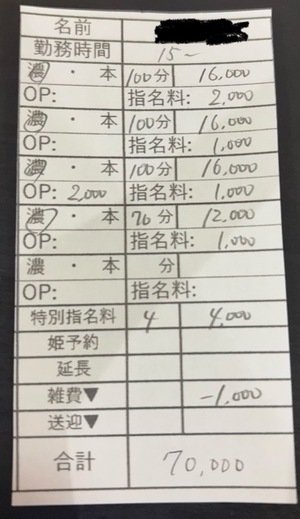 名前
勤務時間 15~
濃・本 100分 16,000
OP: 指名料: 2,000
濃・本 100分 16,000
OP: 指名料: 1,000
濃・本 100分 16,000
OP: 2,000 指名料: 1,000
濃・本 70分 12,000
OP: 指名料: 1,000
濃・本 分
OP: 指名料:
特別指名料 4 4,000
姫予約
延長
雑費▼ -1,000
送迎▼
合計 70,000